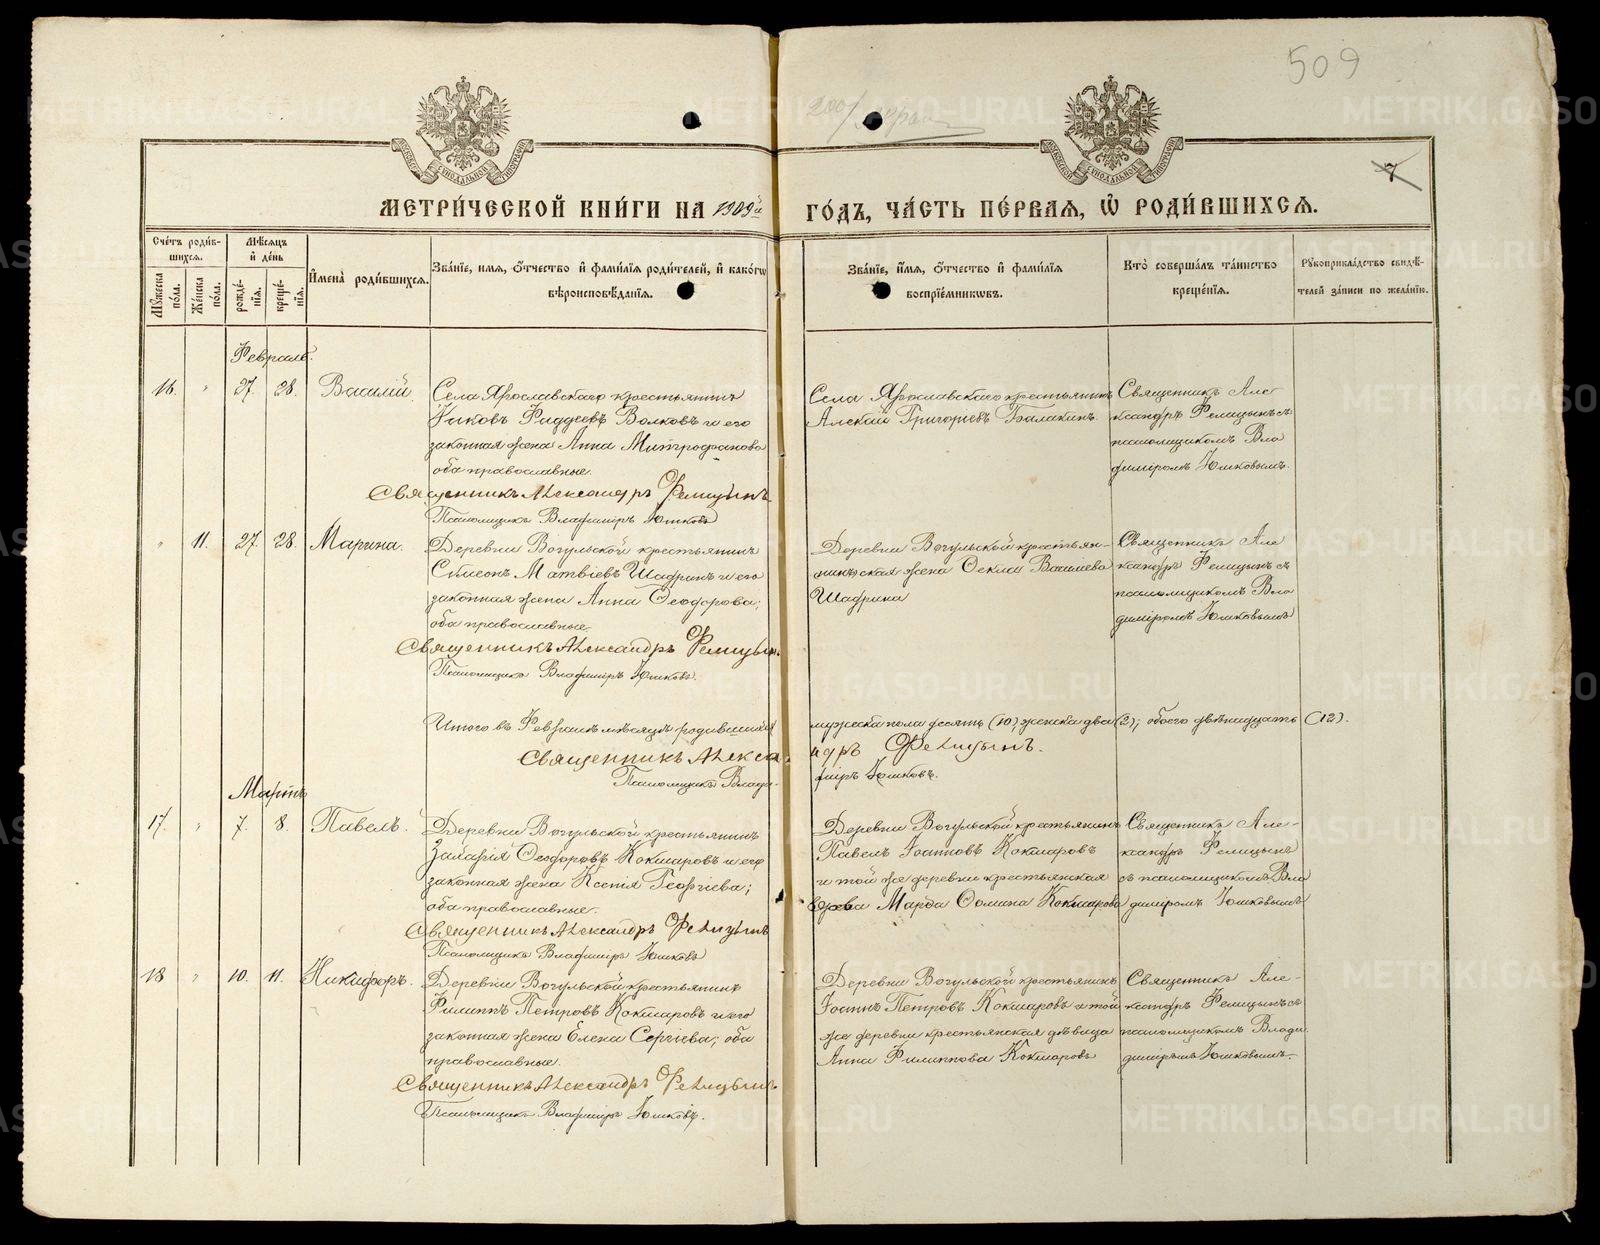 509
7
МЕТРИ́ЧЕСКОЙ КНИ́ГИ НА 1909й ГО́ДЪ, ЧА́СТЬ ПЕ́РВАЯ, Ѡ҆ РОДИ́ВШИХСЯ.
Сче́тъ роди́вшихся.
Мѣ́сяцъ и҆ де́нь
Мꙋ́жеска по́ла.
Же́нска по́ла.
рожде́нїя.
креще́нїя.
И҆мена̀ роди́вшихся.
Зва́нїе, имя, ѻ҆́тчество и҆ фами́лїя роди́телей, и҆ како́гѡ вѣроисповѣ́данїя.
Зва́нїе, и҆́мя, ѻ҆́тчество и҆ фами́лїя воспрїе́мникѡвъ.
Кто̀ соверша́лъ та́инство креще́нїя.
Рꙋкоприкла́дство свидѣ́телей за́писи по жела́нїю.
Февраль.
16. " 27. 28. Василій.
Села Ярославскаго крестьянинъ
Фаддеевъ Волковъ и его
законная жена Анна Митрофанова
оба православные.
Священникъ Александръ Фелицынъ
Псаломщикъ Владиміръ Юшковъ
Села Ярославскаго крестьянинъ
Алексій Григоріевъ Балакинъ.
Священникъ Але
ксандръ Фелицынъ съ
псаломщикомъ Вла
диміромъ Юшковымъ.
" 11. 27. 28. Марина.
Деревни Вогульской крестьянинъ
Сѷмеонъ Матвіевъ Шадринъ и его
законная жена Анна Ѳеодорова;
оба православные.
Священникъ Александръ Фелицын.
Псаломщикъ Владиміръ Юшковъ.
Деревни Вогульской крестьян-
инская жена Ѳекла Васильева
Шадрина
Священникъ Але
ксандръ Фелицынъ съ
псаломщикомъ Вла
диміромъ Юшковымъ
Итого въ Февралѣ мѣсяцѣ родившихся мужеска пола десять (10), женска два (2); обоего двѣнадцать (12).
Священникъ Александръ Фелицынъ.
Псаломщикъ Владиміръ Юшковъ.
Мартъ
17. " 7. 8. Павелъ.
Деревни Вогульской крестьянинъ
Захарія Ѳеодоровъ Кокшаровъ и его
законная жена Ксенія Георгіева;
оба православные.
Священникъ Александръ Фелицынъ
Псаломщикъ Владиміръ Юшковъ
Деревни Вогульской крестьянинъ
Павелъ Іоанновъ Кокшаровъ
и той же деревни крестьянская
Марѳа Ѳомина Кокшарова
Священникъ Але-
ксандръ Фелицынъ
съ псаломщикомъ Вла
диміромъ Юшковымъ
18 " 10. 11. Никифоръ.
Деревни Вогульской крестьянинъ
Филиппъ Петровъ Кокшаровъ и его
законная жена Елена Сергіева; оба
православные.
Священникъ Александръ Фелицынъ
Псаломщикъ Владиміръ Юшковъ.
Деревни Вогульской крестьянинъ
Іоаннъ Петровъ Кокшаровъ и той
же деревни крестьянская дѣвица
Анна Филиппова Кокшаровъ
Священникъ Але-
ксандръ Фелицынъ съ
псаломщикомъ Влади
диміромъ Юшковымъ.
METRIKI.GASO-URAL.RU